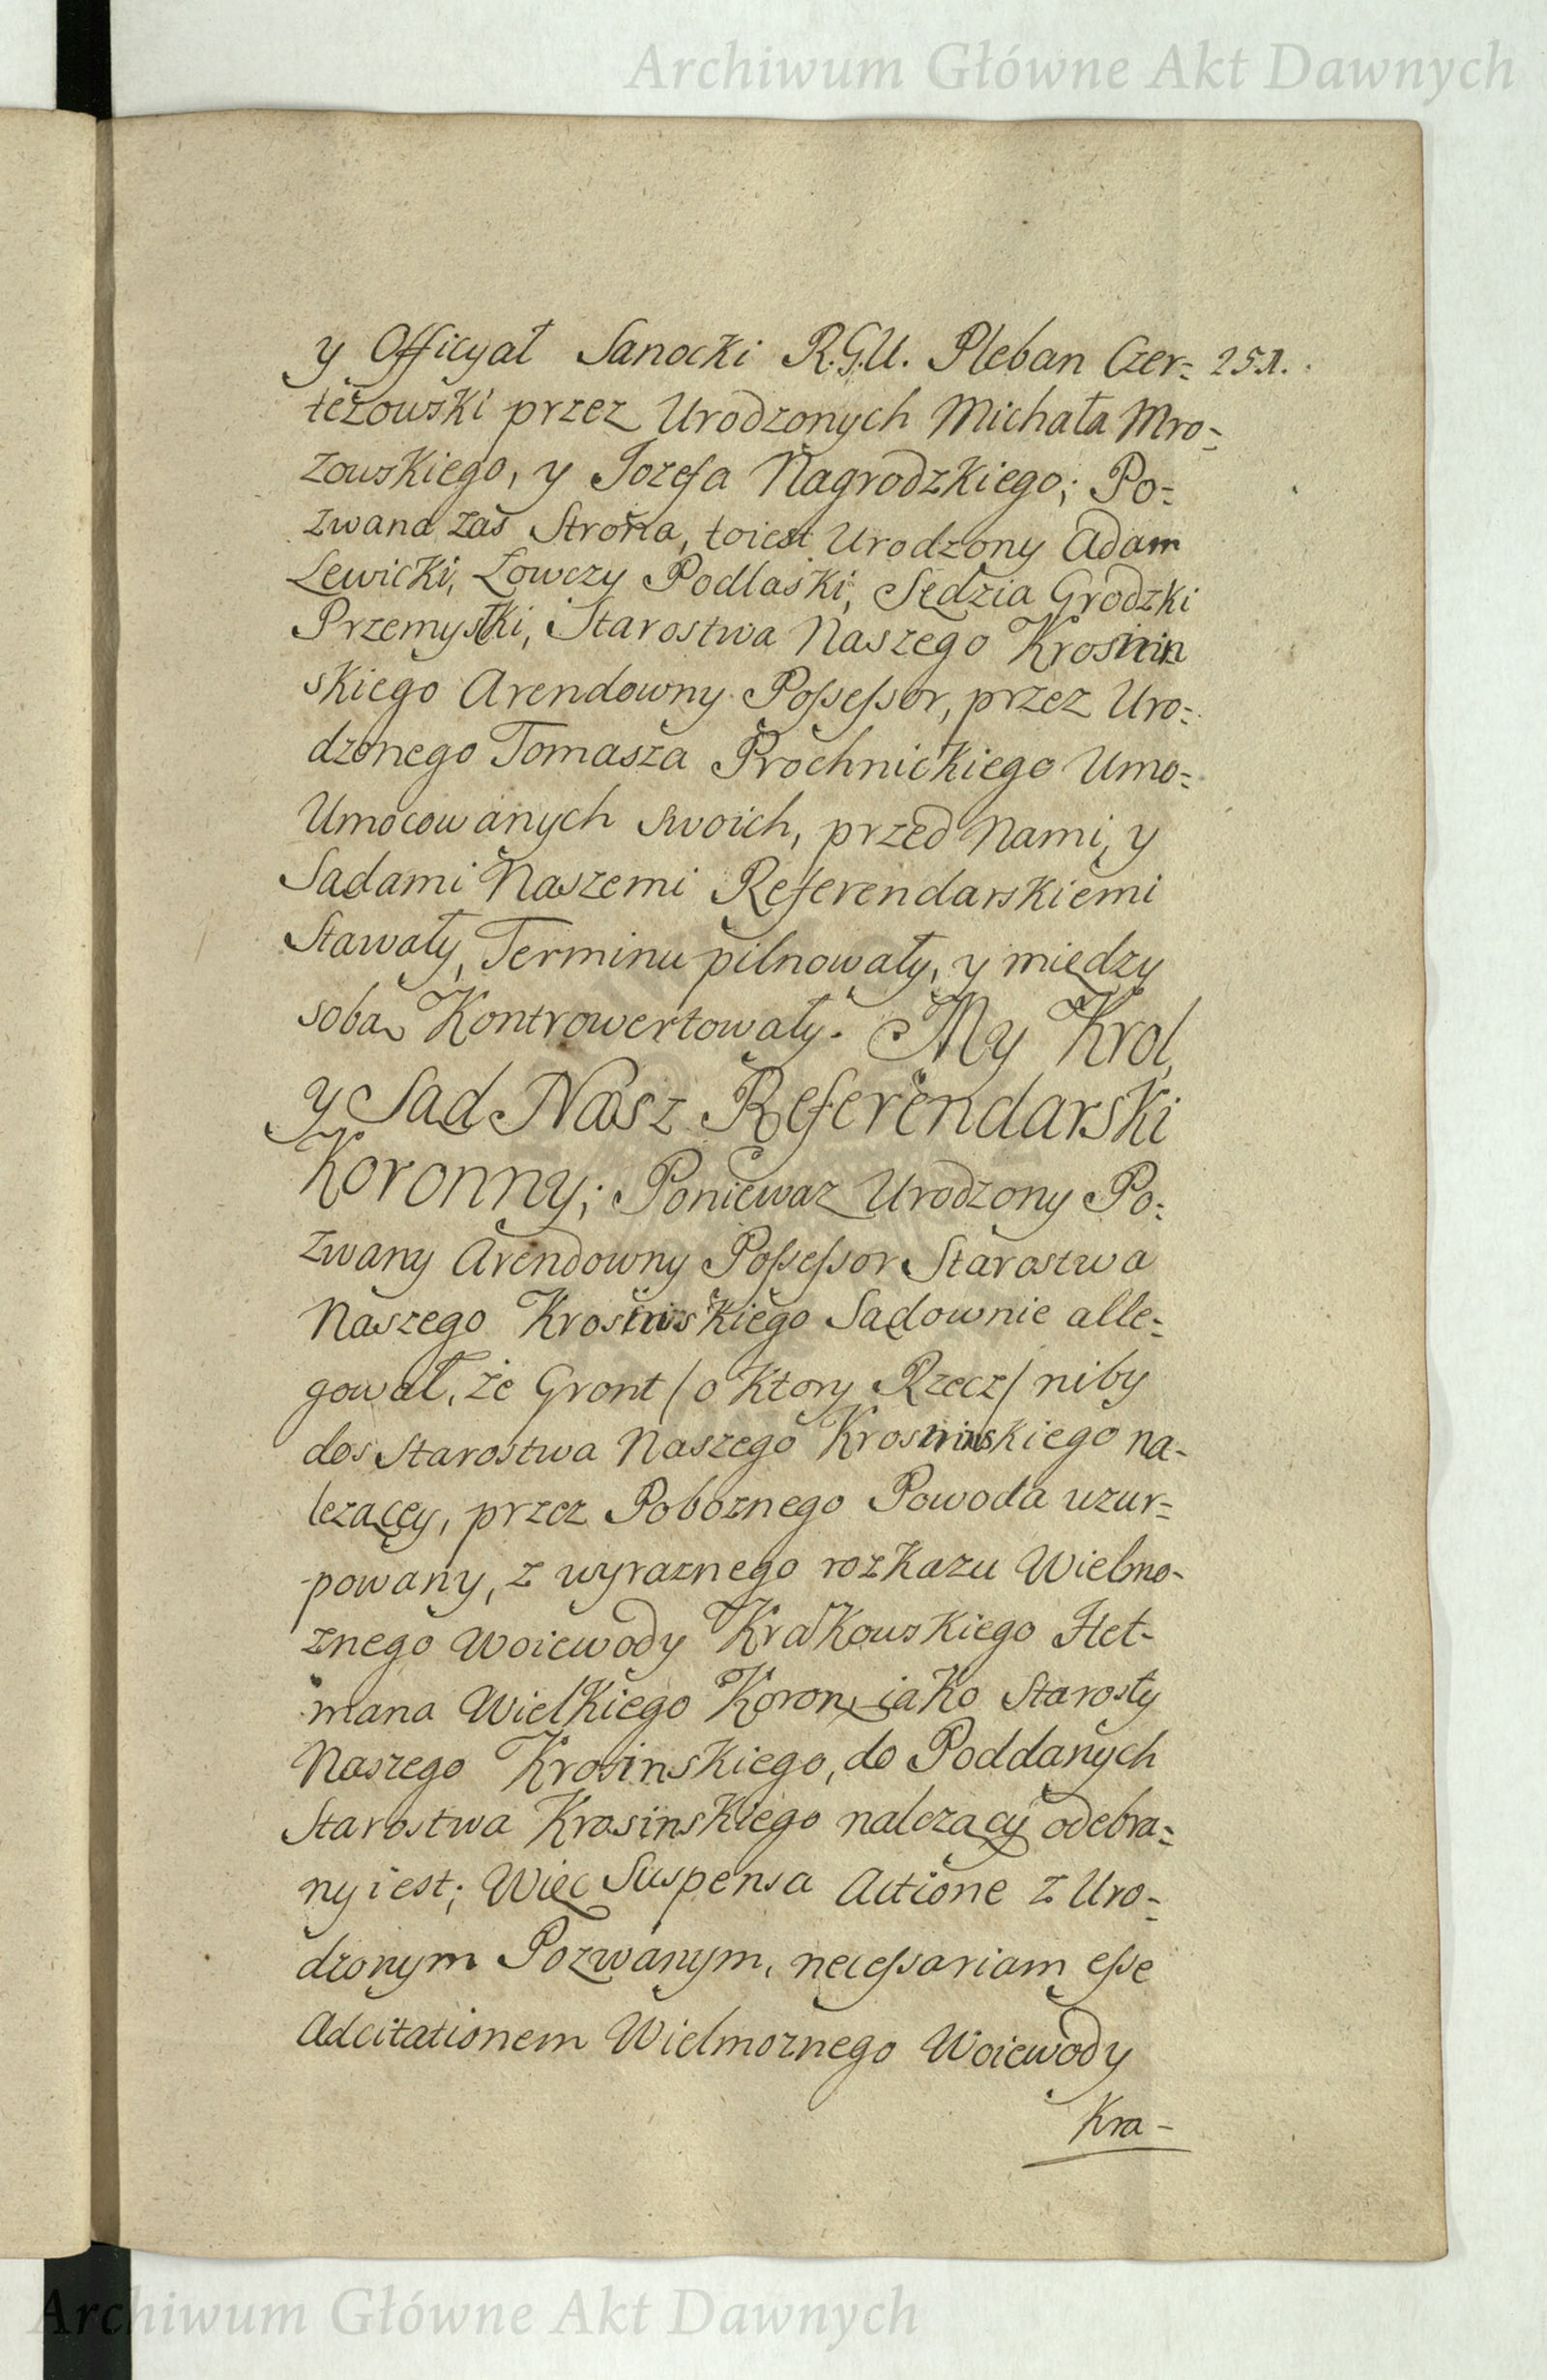 Archiwum Główne Akt Dawnych
y Officyał Sanocki R.G.U. Pleban Czer= 251.
teżowski przez Urodzonych Michała Mro=
zowskiego, y Jozefa Nagrodzkiego; Po=
zwana zaś Strona, toiest Urodzony Adam
Lewicki, Łowczy Podlaski, Sędzia Grodzki
Przemyski, Starostwa Naszego
skiego Arendowny Possessor, przez Uro=
dzonego Tomasza Prochnickiego Umo=
Umocowanych swoich, przed Nami, y
Sądami Naszemi Referendarskiemi
Stawały, Terminu pilnowały, y między
sobą Kontrowertowały. My Krol,
y Sąd Nasz Referendarski
Koronny; Poniewaz Urodzony Po=
zwany Arendowny Possessor Starostwa
Naszego Sądownie alle=
gował, że Gront /o Ktory Rzecz/ niby
do Starostwa Naszego na-
lezący, przez Poboznego Powoda uzur=
powany, z wyraznego rozkazu Wielmo-
znego Woiewody Krakowskiego Het-
mana Wielkiego Koron, iako Starosty
Naszego Krosinskiego, do Poddanych
Starostwa Krosinskiego nalezący odebra=
ny iest; Więc Suspensa Actione z Uro=
dzonym Pozwanym, necessariam esse
Adcitationem Wielmoznego Woiewody
Kra-
Archiwum Główne Akt Dawnych